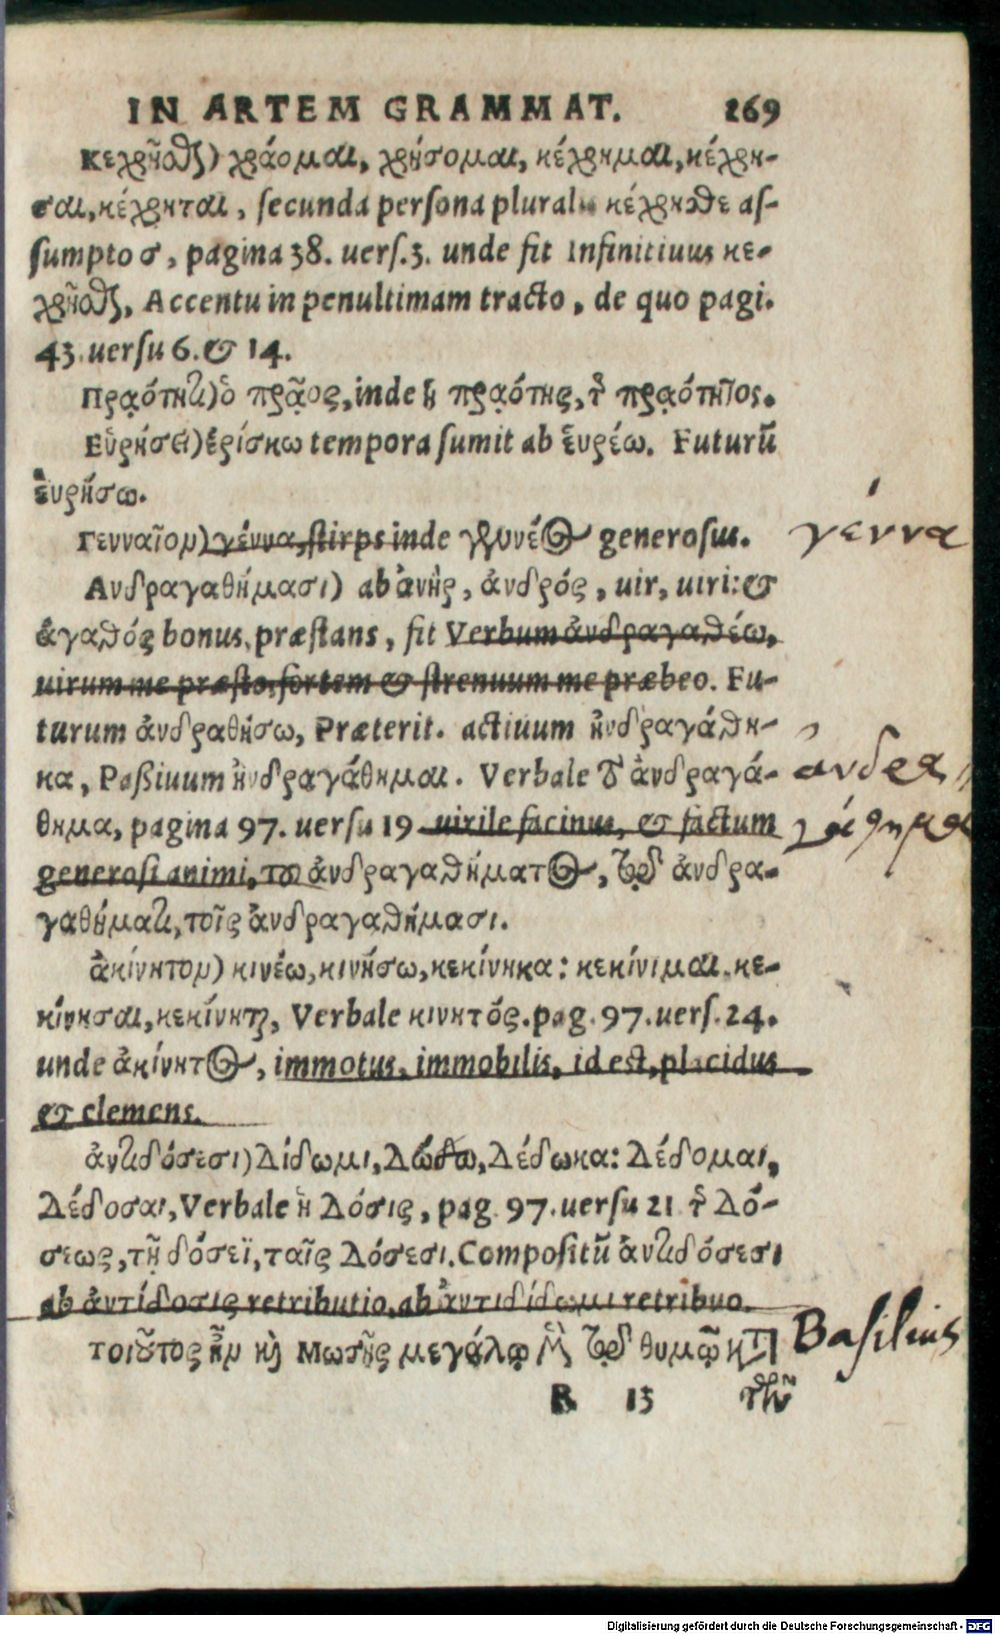 IN ARTEM GRAMMAT. 269
Κεχρῆσθαι) χράομαι, χρήσομαι, κέχρημαι, κέχρη-
σαι, κέχρηται, secunda persona pluralis κέχρησθε as-
sumpto σ, pagina 38. uers.3. unde fit Infinitiuus κε-
χρῆσθαι, Accentu in penultimam tracto, de quo pagi.
43. uersu 6. & 14.
Πρᾳότητι) ὁ πρᾷος, inde ἡ πρᾳότης, τῆ πρᾳότητος.
Εὑρήσει) ἑρίσκω tempora sumit ab εὑρέω. Futurū
εὑρήσω.
Γενναῖον) γέννα, stirps inde generosus.
γέννα
Ανδραγαθήμασι) ab ἀνὴρ, ἀνδρός, uir, uiri: &
ἀγαθός bonus, præstans, fit Verbum ἀνδραγαθέω,
uirum me præsto, fortem & strenuum me præbeo. Fu-
turum ἀνδραθήσω, Præterit. actiuum ἠνδραγάθη-
κα, Paßiuum ἠνδραγάθημαι. Verbale ἀνδραγά-
ἀνδρα
θημα, pagina 97. uersu 19 uirile facinus, & factum
γάθημα
generosi animi, το ἀνδραγαθήματος, τῷ ἀνδρα-
γαθήματι, τοῖς ἀνδραγαθήμασι.
ἀκίνητον) κινέω, κινήσω, κεκίνηκα: κεκίνιμαι, κε-
κίνησαι, κεκίνηται, Verbale κινητός. pag. 97. uers. 24.
unde ἀκίνητος, immotus, immobilis, id est, placidus
& clemens.
ἀντιδόσεσι) Δίδωμι, Δώσω, Δέδωκα: Δέδομαι,
Δέδοσαι, Verbale ἡ Δόσις, pag. 97. uersu 21 τῆ Δό-
σεως, τῇ δόσεϊ, ταῖς Δόσεσι. Compositū ἀντιδόσεσι
ab ἀντίδοσις retributio, ab ἀντιδίδωμι retribuo.
τοιοῦτος ἦν καὶ Μωσῆς μεγάλῳ τῷ θυμῷ κατ
Basilius
R 13 τῶν
Digitalisierung gefördert durch die Deutsche Forschungsgemeinschaft - DFG